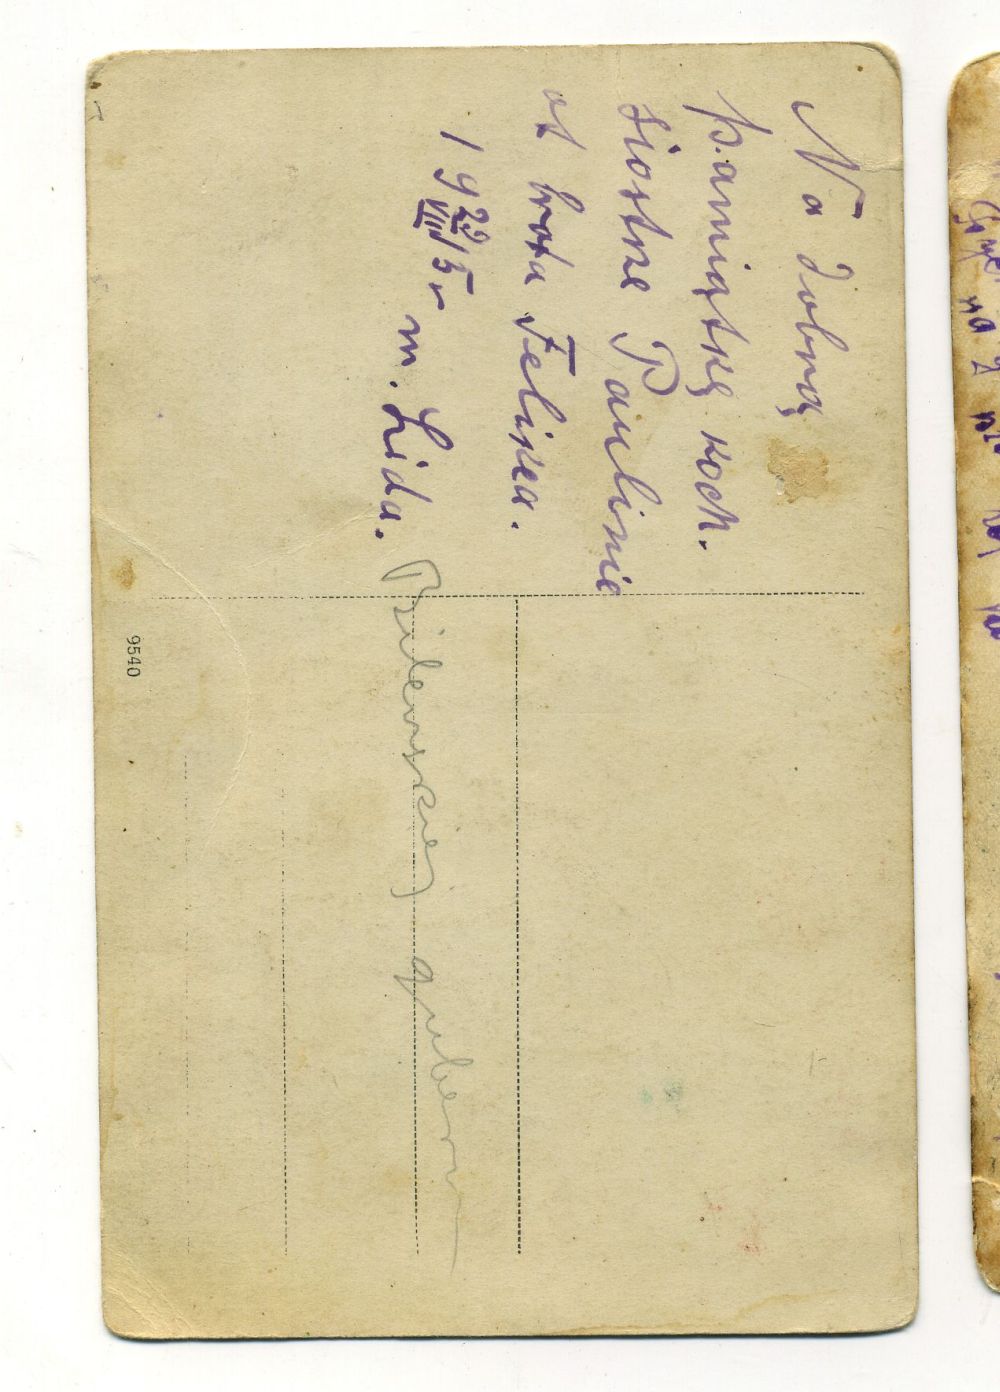 Na dobrą
pamiątkę koch.
siostrze Paulinie
ot brata Feliksa.
19 22/VIII 15 r
m. Lida.
Wilenskiej gubern
9540